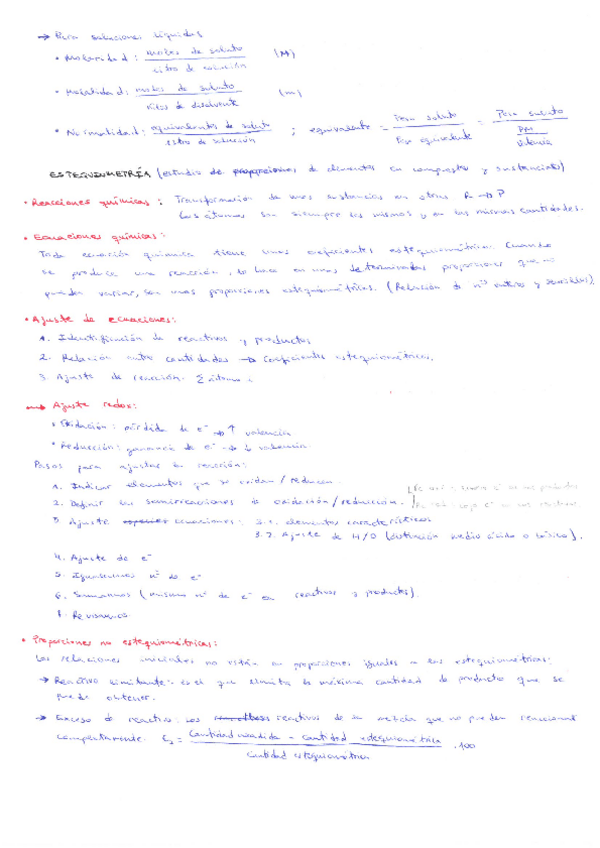 → Para soluciones líquidas
• Molaridad: moles de soluto / litro de solución (M)
• Molalidad: moles de soluto / kilos de disolvente (m)
• Normalidad: equivalentes de soluto / litro de solución ; equivalente = Peso soluto / Peso equivalente = Peso soluto / PM / valencia
ESTEQUIOMETRÍA (estudio de proporciones de elementos en compuestos y sustancias)
• Reacciones químicas: Transformación de unas sustancias en otras R → P
Los átomos son siempre los mismos y en las mismas cantidades.
• Ecuaciones químicas:
Toda ecuación química tiene unos coeficientes estequiométricos. Cuando
se produce una reacción, lo hace en unas determinadas proporciones que no
pueden variar, son unas proporciones estequiométricas. (Relación de nos enteros y sencillos).
• Ajuste de ecuaciones:
1. Identificación de reactivos y productos
2. Relación entre cantidades → coeficientes estequiométricos.
3. Ajuste de reacción. Σ átomos
→ Ajuste redox:
• Oxidación: pérdida de e⁻ → ↑ valencia
• Reducción: ganancia de e⁻ → ↓ valencia
Pasos para ajustar la reacción:
1. Indicar elementos que se oxidan / reducen.
2. Definir las semirreacciones de oxidación / reducción.
3. Ajuste especies ecuaciones: 3.1. elementos característicos
3.2. Ajuste de H/O (distinción medio ácido o básico).
4. Ajuste de e⁻
5. Igualamos nº de e⁻
6. Sumamos (mismo nº de e⁻ en reactivos y productos).
Revisamos
• Proporciones no estequiométricas:
Las relaciones iniciales no están en proporciones iguales a las estequiométricas:
→ Reactivo limitante: es el que limita la máxima cantidad de producto que se
puede obtener.
→ Exceso de reactivo: Los reactivos de la mezcla que no pueden reaccionar
completamente. = Cantidad añadida - cantidad estequiométrica / Cantidad estequiométrica . 100